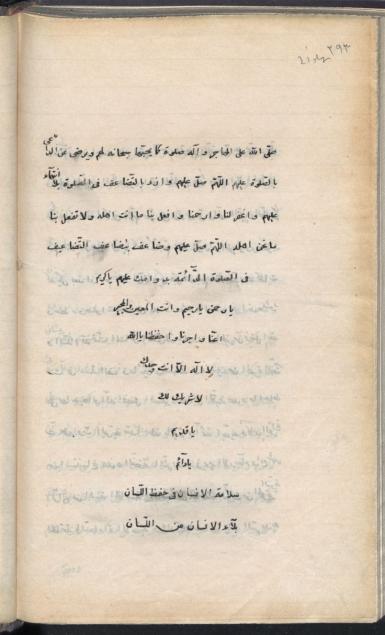 ٢٩٣
صلّى الله على الحاس وآله صلوة كما يحبّها سبحانه لهم ويرضى عن الداعي
بالصلوة عليهم اللّهمّ صلّ عليهم وزد بالتضاعف في الصلوة بلا انتهاء
عليهم واغفر لنا وارحمنا وافعل بنا ما انت اهله ولا تفعل بنا
ما نحن اهله اللّهمّ صلّ عليهم وضاعف بتضاعف التضاعيف
في الصلوة الدّائمة عليهم يا كريم
يا رحمن يا رحيم وانت المعين والمجير
اغثنا واجرنا واحفظنا يا الله
لا اله الّا انت وحدك
لا شريك لك
يا قديم
يا دائم
سلامة الانسان في حفظ اللّسان
بلاء الانسان من اللّسان